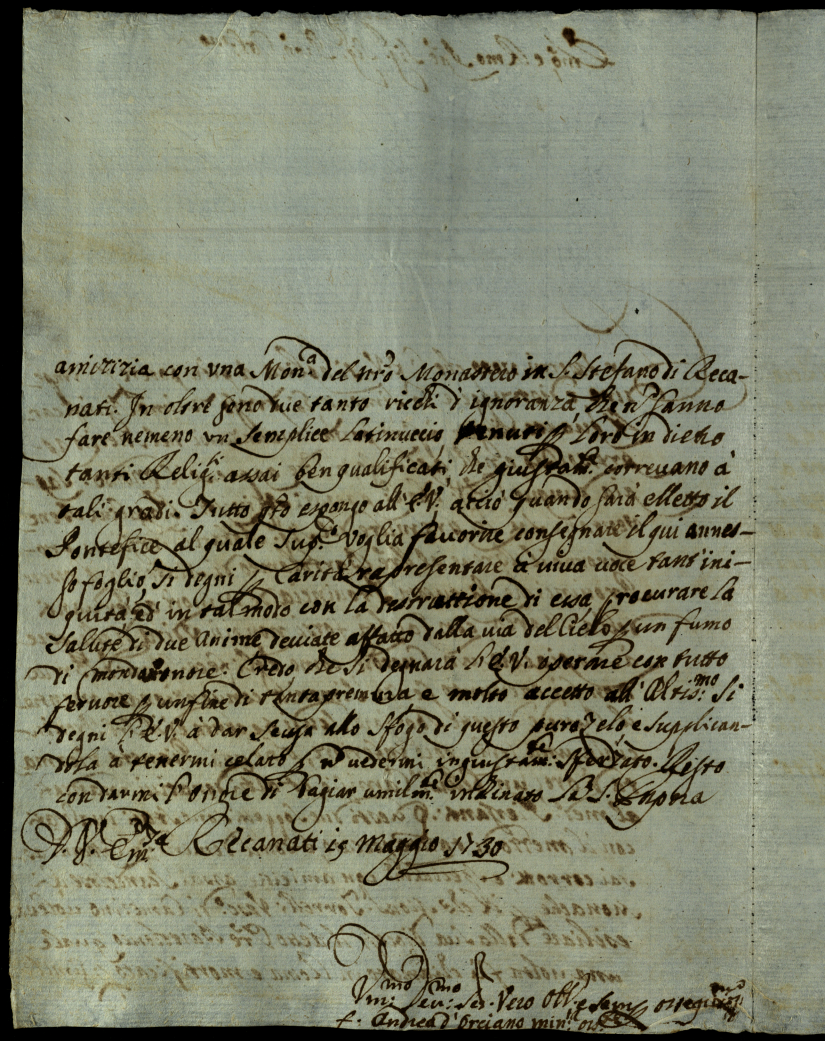 amicizia con una Mon.a del nr̃o Monastero in S. Stefano di Reca-
nati. In oltre sono due tanto ricchi d'ignoranza, che nõ sanno
fare nemeno un semplice latinuccio, tenuti p loro in dietro
tanti Relig.i assai ben qualificati, che giustam.te correvano à
tali gradi. Tutto q̃to espongo all'E.V. acciò quando sarà elletto il
Pontefice, al quale Sup.o voglia favorire consegnare il qui annes-
so foglio, si degni p Carità rapresentare à viva voce tant'ini-
quità, ed in tal modo con la destruttione di essa procurare la
salute di due Anime deviate affatto dalla via del Cielo p un fumo
di mondano onore. Credo che si degnarà l'E.V. operare con tutto
fervore p un fine di tanta premura e molto accetto all'Altis.mo Si
degni l'E.V. à dar scusa allo sfogo di questo puro zelo, e supplican-
dola à tenermi celato p nõ vedermi ingiustam.te sforzato. Resto
con darmi l'onore di bagiar umilm.te inchinato la S. Porpora
D. V. Em.za Recanati 19 Maggio 1730
Um.mo Dev.mo Ser. Vero Obb. e semp ossequiosis.mo
f. Andrea d'Orciano min. oss.